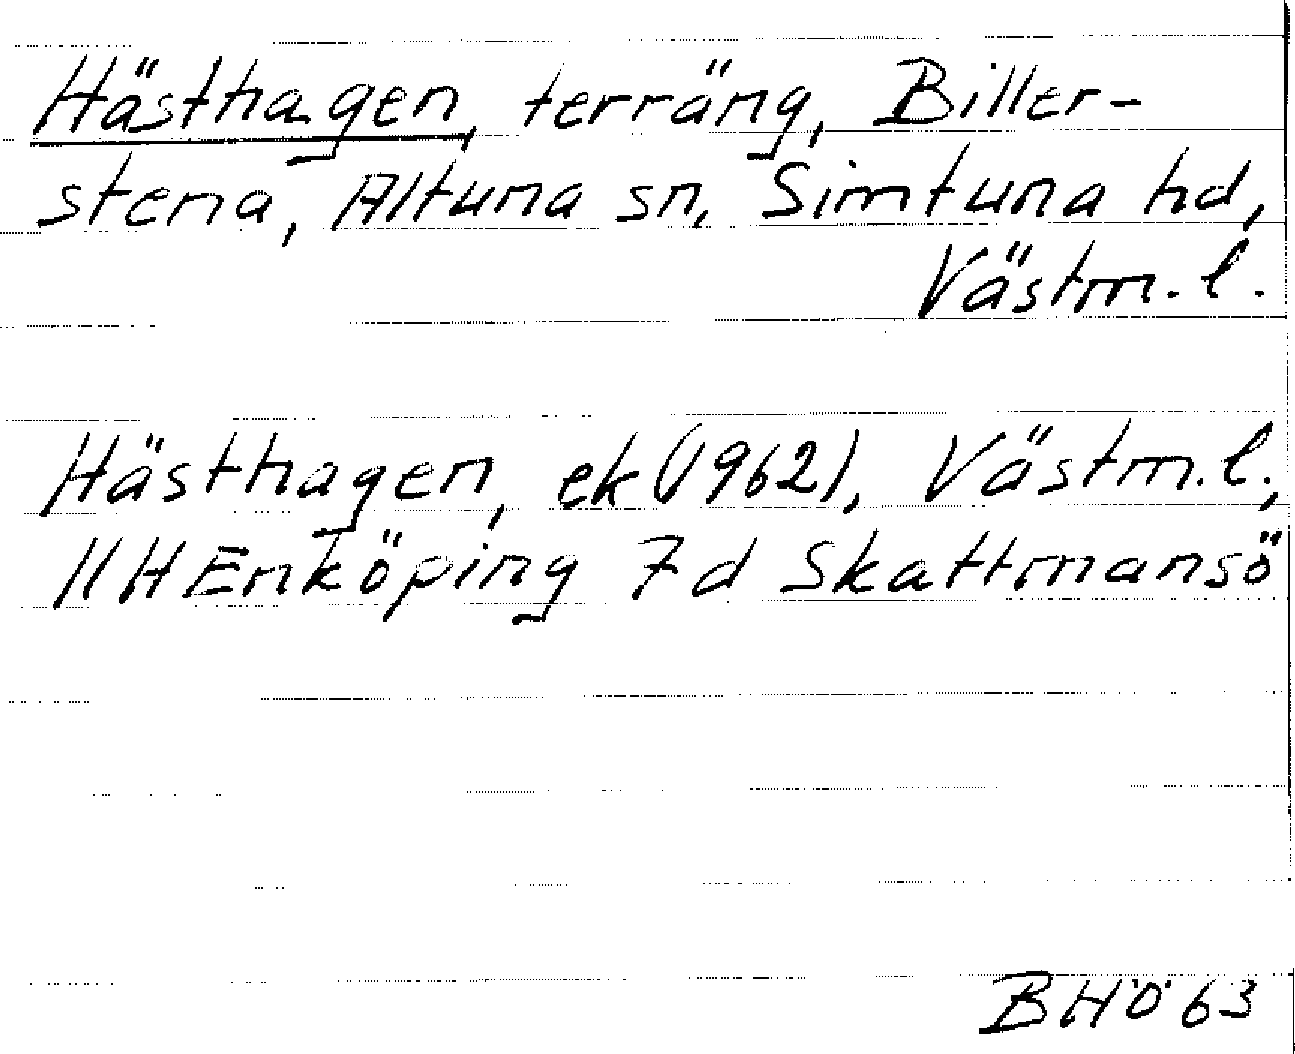 Hästhagen, terräng, Biller-
stena, Altuna sn, Simtuna hd,
Västm. l.
Hästhagen, ek (1962), Västm. l.,
11H Enköping 7d Skattmansö
BHÖ 63